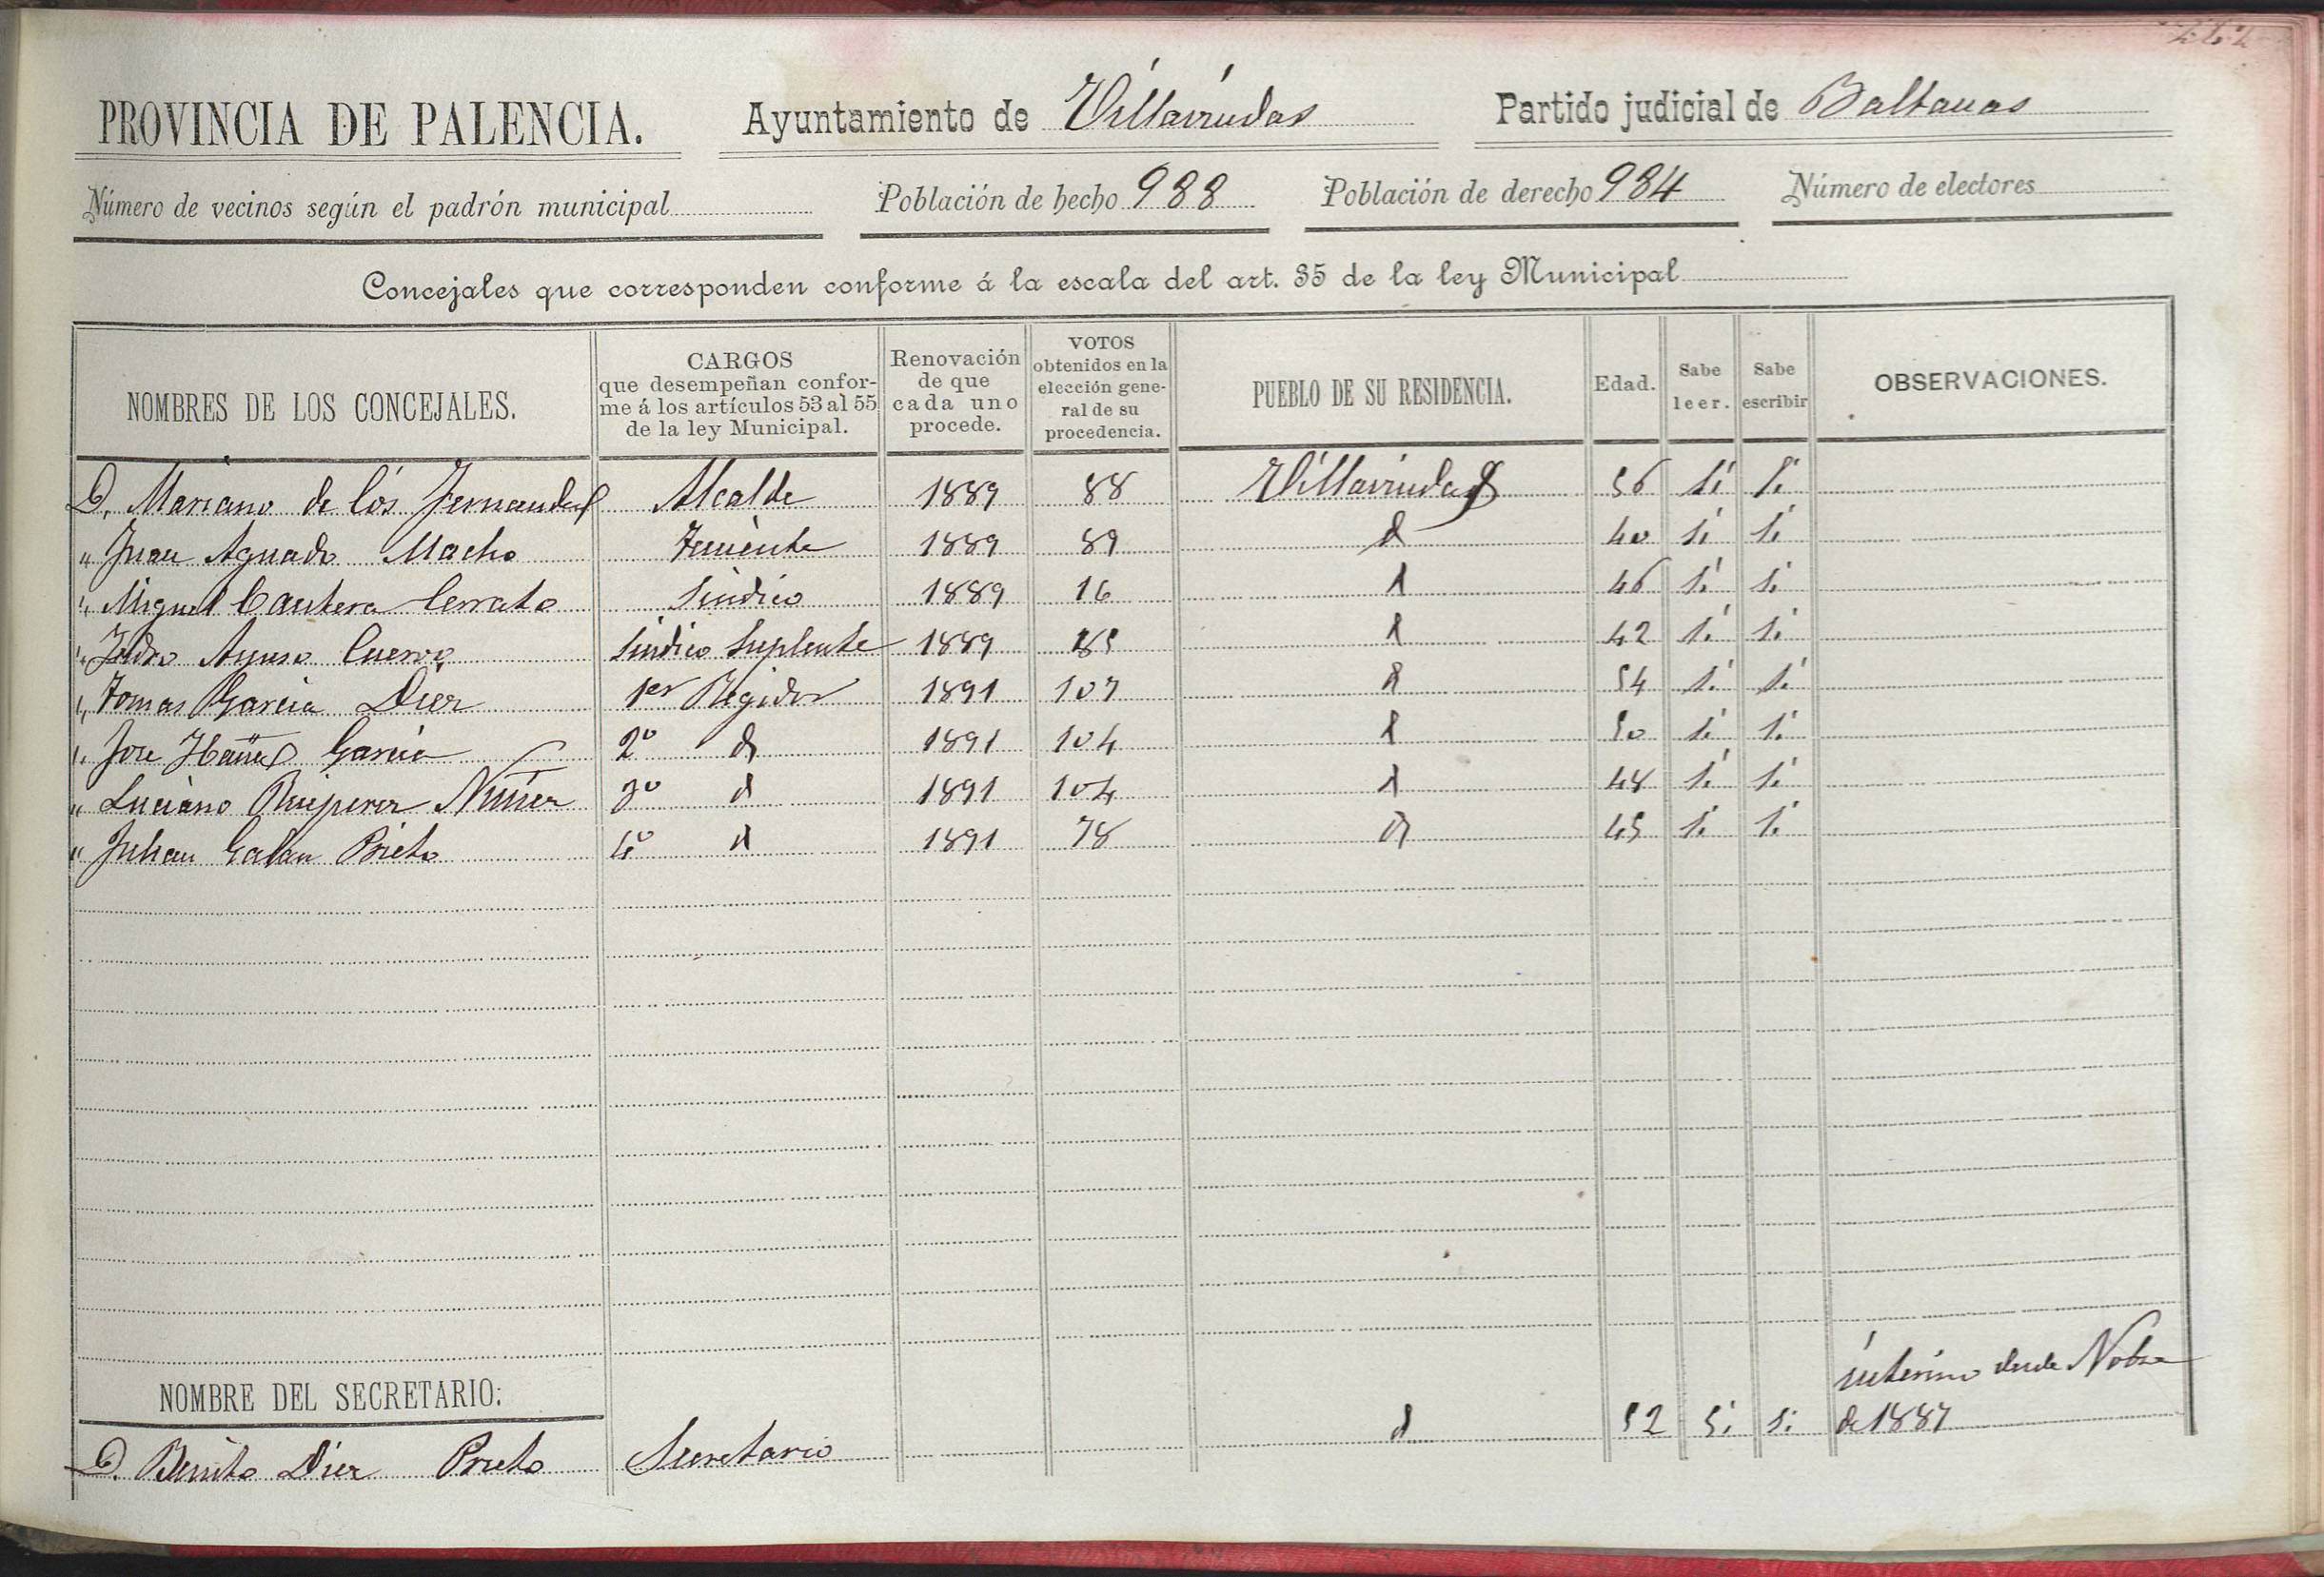 PROVINCIA DE PALENCIA. Ayuntamiento de Villaviudas Partido judicial de Baltanas
Número de vecinos según el padrón municipal Población de hecho 988 Población de derecho 984 Número de electores
Concejales que corresponden conforme á la escala del art. 35 de la ley Municipal
NOMBRES DE LOS CONCEJALES. CARGOS que desempeñan conforme á los artículos 53 al 55 de la ley Municipal. Renovación de que cada uno procede. VOTOS obtenidos en la elección general de su procedencia. PUEBLO DE SU RESIDENCIA. Edad. Sabe leer. Sabe escribir OBSERVACIONES.
D. Mariano de lós Fernandez Alcalde 1889 88 Villaviudas 56 Si Si
" Juan Aguado Macho Teniente 1889 89 d 40 Si Si
" Miguel Cantera Cerrato Sindico 1889 16 d 46 Si Si
" Isidro Ayuso Cuervo Sindico Suplente 1889 85 d 42 Si Si
" Tomas Garcia Diez 1er Regidor 1891 107 d 54 Si Si
" Jose Ibañez Garcia 2º d 1891 104 d 50 Si Si
" Luciano Nuñez 3º d 1891 104 d 48 Si Si
" Julian Galan Prieto 4º d 1891 78 d 45 Si Si
NOMBRE DEL SECRETARIO:
D. Benito Diez Prieto Secretario d 52 Si Si interino desde Nobre de 1887